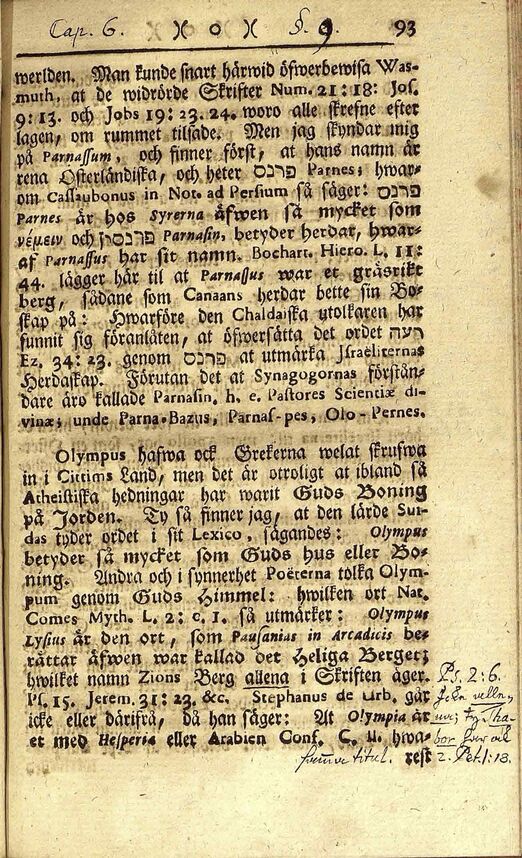 Cap. 6. )( o )( §. 9. 93
werlden. Man kunde snart härwid öfwerbewisa Was-
muth, at de widrörde Skrifter Num. 21:18: Jos.
9:13. och Jobs 19:23.24. woro alle skrefne efter
lagen, om rummet tilsade. Men jag skyndar mig
på Parnassum, och finner först, at hans namn är
rena Österländiska, och heter פרנס Parnes; hwar-
om Cassaubonus in Not. ad Persium så säger: פרנס
Parnes är hos Syrerna äfwen så mycket som
νέμειν och פרנסין Parnasin, betyder herdar, hwar-
af Parnassus har sit namn. Bochart. Hiero. L. II:
44. lägger här til at Parnassus war et gräsrikt
berg, sådane som Canaans herdar bette sin Bo-
skap på: Hwarföre den Chaldaiska utolkaren har
funnit sig föranlåten, at öfwersätta det ordet רעה
Ez. 34:23. genom פרנס at utmärka Jsraëliternas
Herdaskap. Förutan det at Synagogornas förstån-
dare äro kallade Parnasin. h. e. Pastores Scientiæ di-
vinæ; unde Parna-Bazus, Parnas-pes, Olo-Pernes.
Olympus hafwa ock Grekerna welat skrufwa
in i Cittims Land, men det är otroligt at ibland så
Atheistiska hedningar har warit Guds Boning
på Jorden. Ty så finner jag, at den lärde Sui-
das tyder ordet i sit Lexico, sägandes: Olympus
betyder så mycket som Guds hus eller Bo-
ning. Andra och i synnerhet Poëterna tolka Olym-
pum genom Guds Himmel: hwilken ort Nat.
Comes Myth. L. 2: c. 1. så utmärker: Olympus
Lysius är den ort, som Pausanias in Arcadicis be-
rättar äfwen war kallad det Heliga Berget;
hwilket namn Zions Berg allena i Skriften äger.
Ps. 15. Jerem. 31:23. &c. Stephanus de Urb. går
icke eller därifrå, då han säger: At Olympia är
et med Hesperia eller Arabien Conf. C. 11. hwa-
rest
Ps. 2:6.
2. Pet. 1:18.
samma titul.